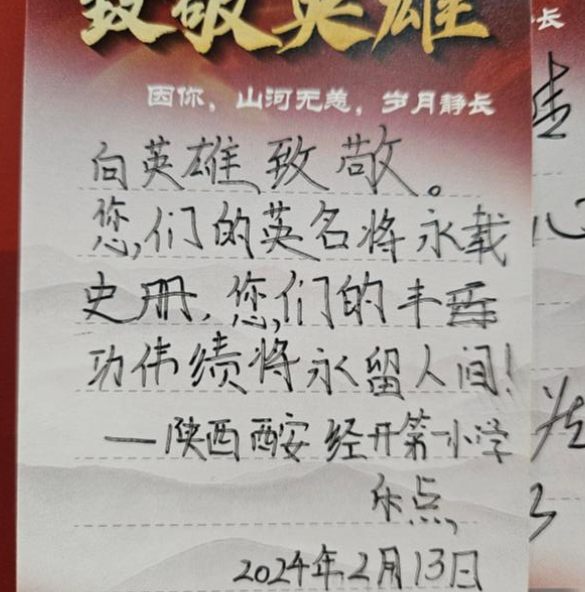 致敬英雄
因你，山河无恙，岁月静长
向英雄致敬。
您们的英名将永载
史册，您们的丰
功伟绩将永留人间！
—陕西西安经开第一小学
乐点
2024年2月13日
长
心